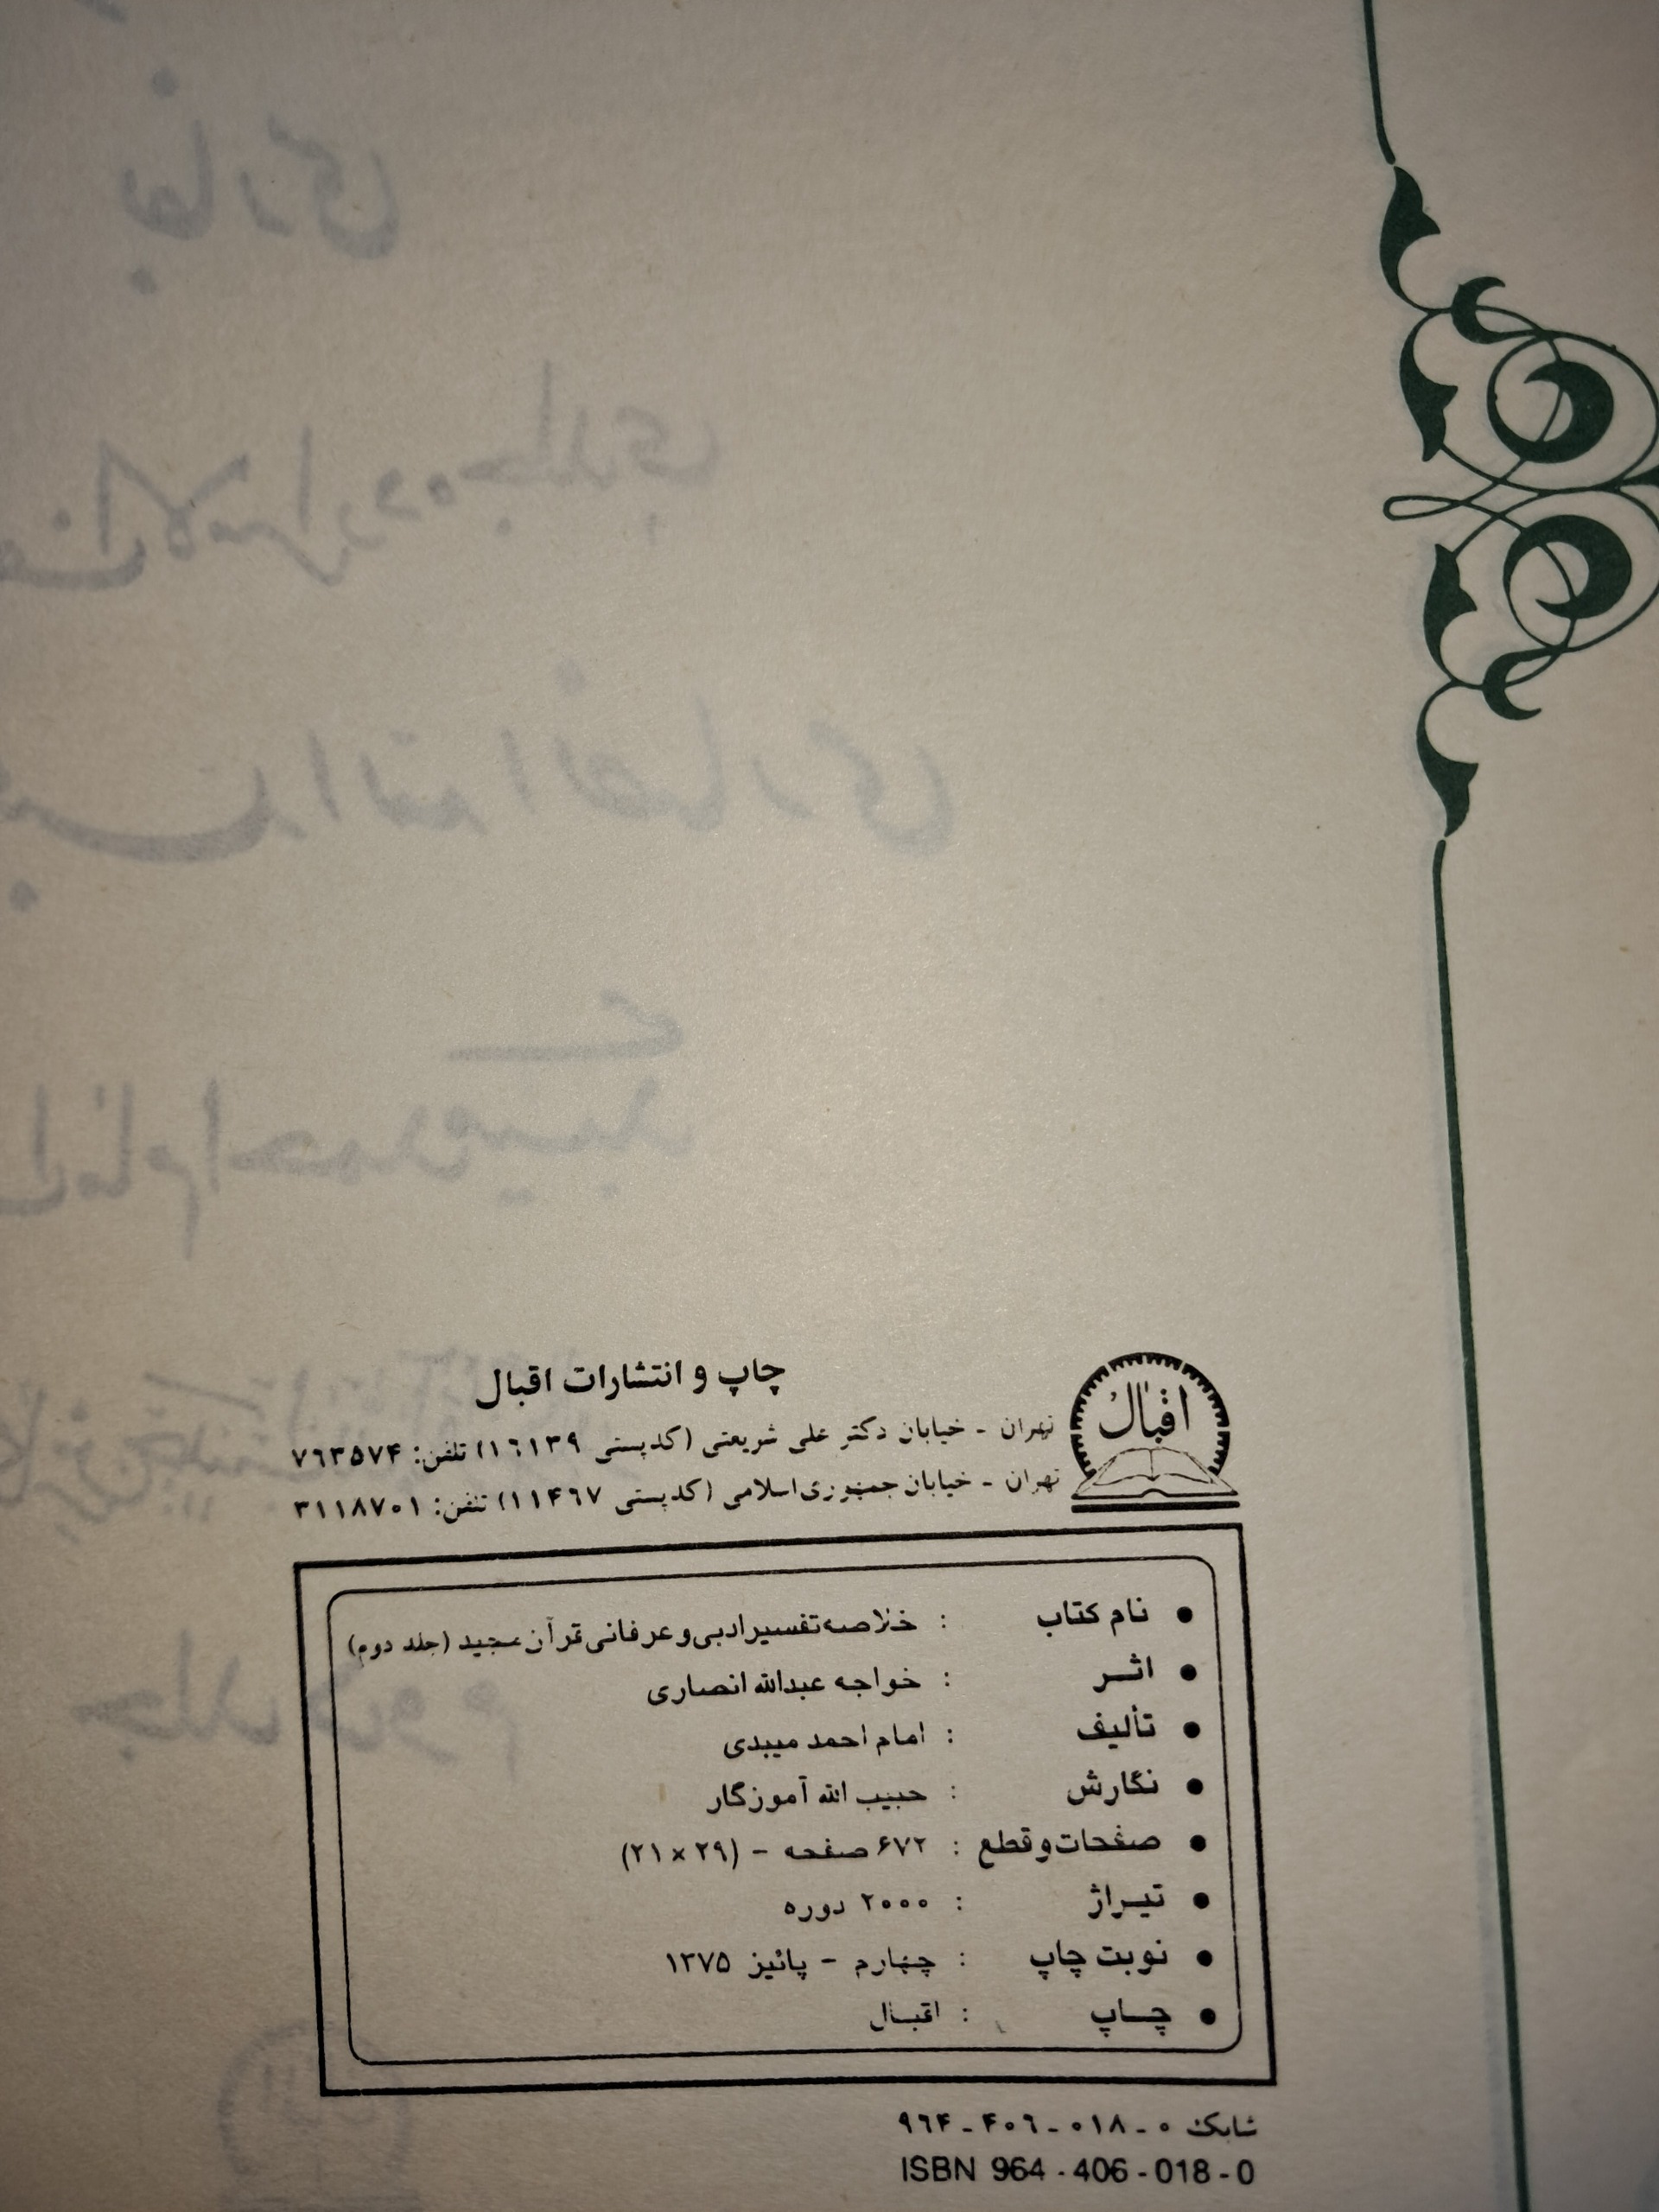 اقبال
چاپ و انتشارات اقبال
تهران - خیابان دکتر علی شریعتی (کدپستی ۱٦۱۳۹) تلفن: ۷٦۳۵۷۴
تهران - خیابان جمهوری‌اسلامی (کدپستی ۱۱۴٦۷) تلفن: ۳۱۱۸۷۰۱
● نام کتاب : خلاصه تفسیر ادبی و عرفانی قرآن مجید (جلد دوم)
● اثر : خواجه عبدالله انصاری
● تألیف : امام احمد میبدی
● نگارش : حبیب الله آموزگار
● صفحات و قطع : ۶۷۲ صفحه - (۲۹ × ۲۱)
● تیراژ : ۲۰۰۰ دوره
● نوبت چاپ : چهارم - پائیز ۱۳۷۵
● چاپ : اقبال
شابک ۰ - ۰۱۸ - ۴۰٦ - ۹٦۴
ISBN 964 - 406 - 018 - 0